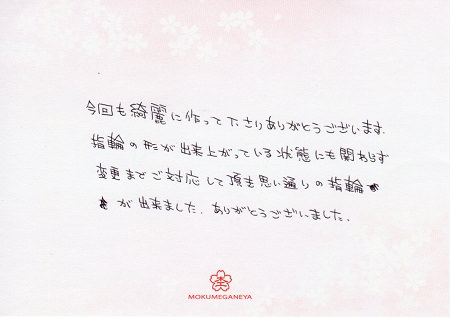 今回も綺麗に作って下さりありがとうございます.
指輪の形が出来上がっている状態にも関わらず
変更までご対応して頂き思い通りの指輪
が出来ました. ありがとうございました.
MOKUMEGANEYA